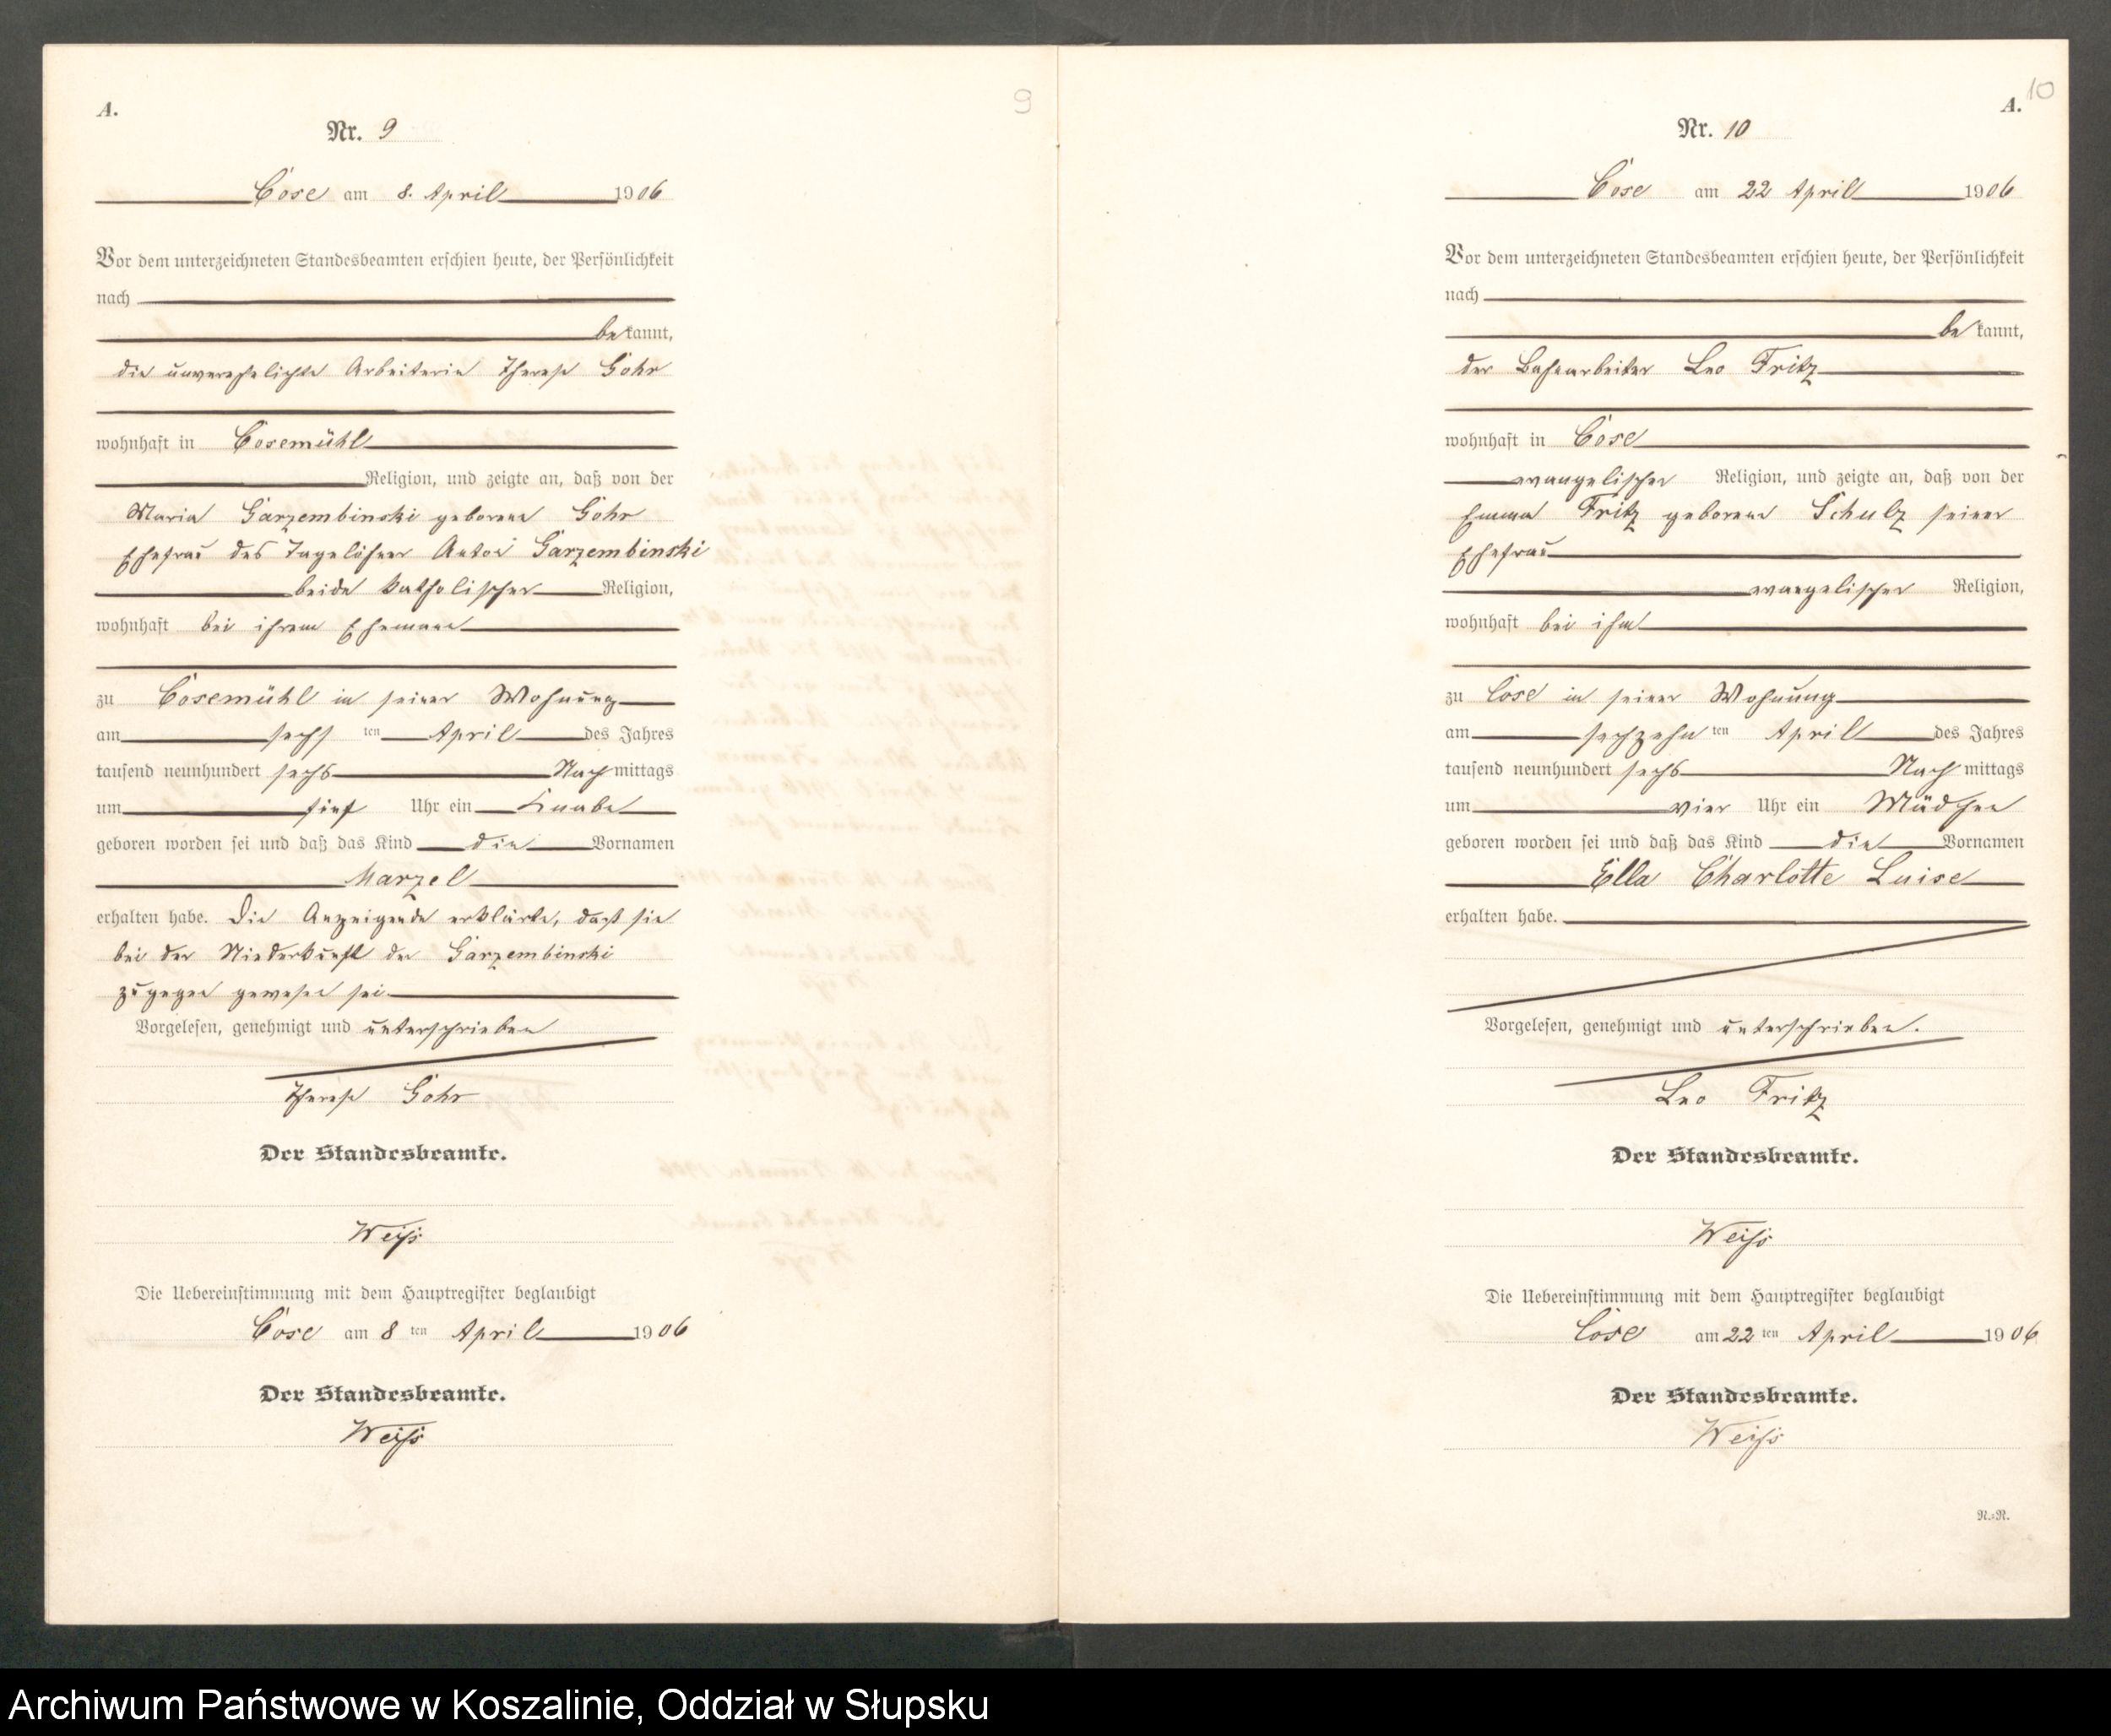 A.
9
Nr. 9
Cose am 8. April 1906
Vor dem unterzeichneten Standesbeamten erschien heute, der Persönlichkeit
nach
bekannt,
die unverehelichte Arbeiterin Therese Gohr
wohnhaft in Cosemühl
Religion, und zeigte an, daß von der
Maria Garzembinski geborene Gohr
Ehefrau des Tagelöhner Anton Garzembinski
beide katholischer Religion,
wohnhaft bei ihrem Ehemann
zu Cosemühl in seiner Wohnung
am sechsten April des Jahres
tausend neunhundert sechs Nachmittags
um fünf Uhr ein Knabe
geboren worden sei und daß das Kind die Vornamen
Marzel
erhalten habe. Die Anzeigende erklärte, daß sie
bei der Niederkunft der Garzembinski
zugegen gewesen sei
Vorgelesen, genehmigt und unterschrieben
Therese Gohr
Der Standesbeamte.
Weiß
Die Uebereinstimmung mit dem Hauptregister beglaubigt
Cose am 8ten April 1906
Der Standesbeamte.
Weiß
A.
10
Nr. 10
Cose am 22 April 1906
Vor dem unterzeichneten Standesbeamten erschien heute, der Persönlichkeit
nach
bekannt,
der Bahnarbeiter Leo Fritz
wohnhaft in Cose
evangelischer Religion, und zeigte an, daß von der
Emma Fritz geborene Schulz seiner
Ehefrau
evangelischer Religion,
wohnhaft bei ihm
zu Cose in seiner Wohnung
am sechzehnten April des Jahres
tausend neunhundert sechs Nachmittags
um vier Uhr ein Mädchen
geboren worden sei und daß das Kind die Vornamen
Ella Charlotte Luise
erhalten habe.
Vorgelesen, genehmigt und unterschrieben.
Leo Fritz
Der Standesbeamte.
Weiß
Die Uebereinstimmung mit dem Hauptregister beglaubigt
Cose am 22ten April 1906
Der Standesbeamte.
Weiß
N.=R.
Archiwum Państwowe w Koszalinie, Oddział w Słupsku